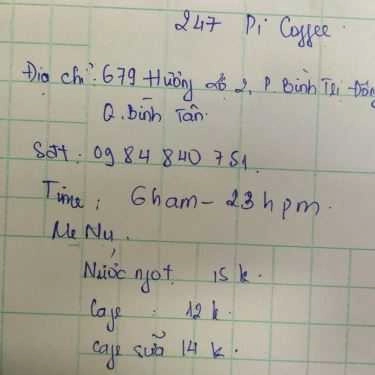 247 Pi Coffee
Địa chỉ: 679 Hương Lộ 2, P. Bình Trị Đông
Q. Bình Tân.
Sđt: 0984 840 751.
Time: 6ham - 23hpm.
Me Nu.
Nước ngọt 15k.
Cafe : 12k.
Cafe sữa 14k.